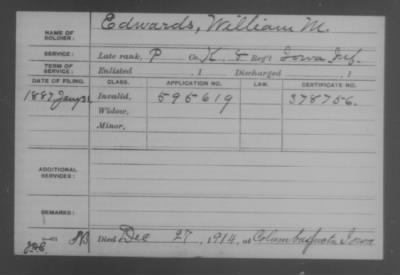 NAME OF SOLDIER: Edwards, William M.
SERVICE: Late rank, P Co. K, 8 Reg't Iowa Inf.
TERM OF SERVICE: Enlisted , 1 Discharged , 1
DATE OF FILING. CLASS. APPLICATION NO. LAW. CERTIFICATE NO.
1887 Jany 31 Invalid, 595619 378756.
Widow,
Minor,
ADDITIONAL SERVICES:
REMARKS:
Died Dec 27, 1914, at Columbus Juncta Iowa